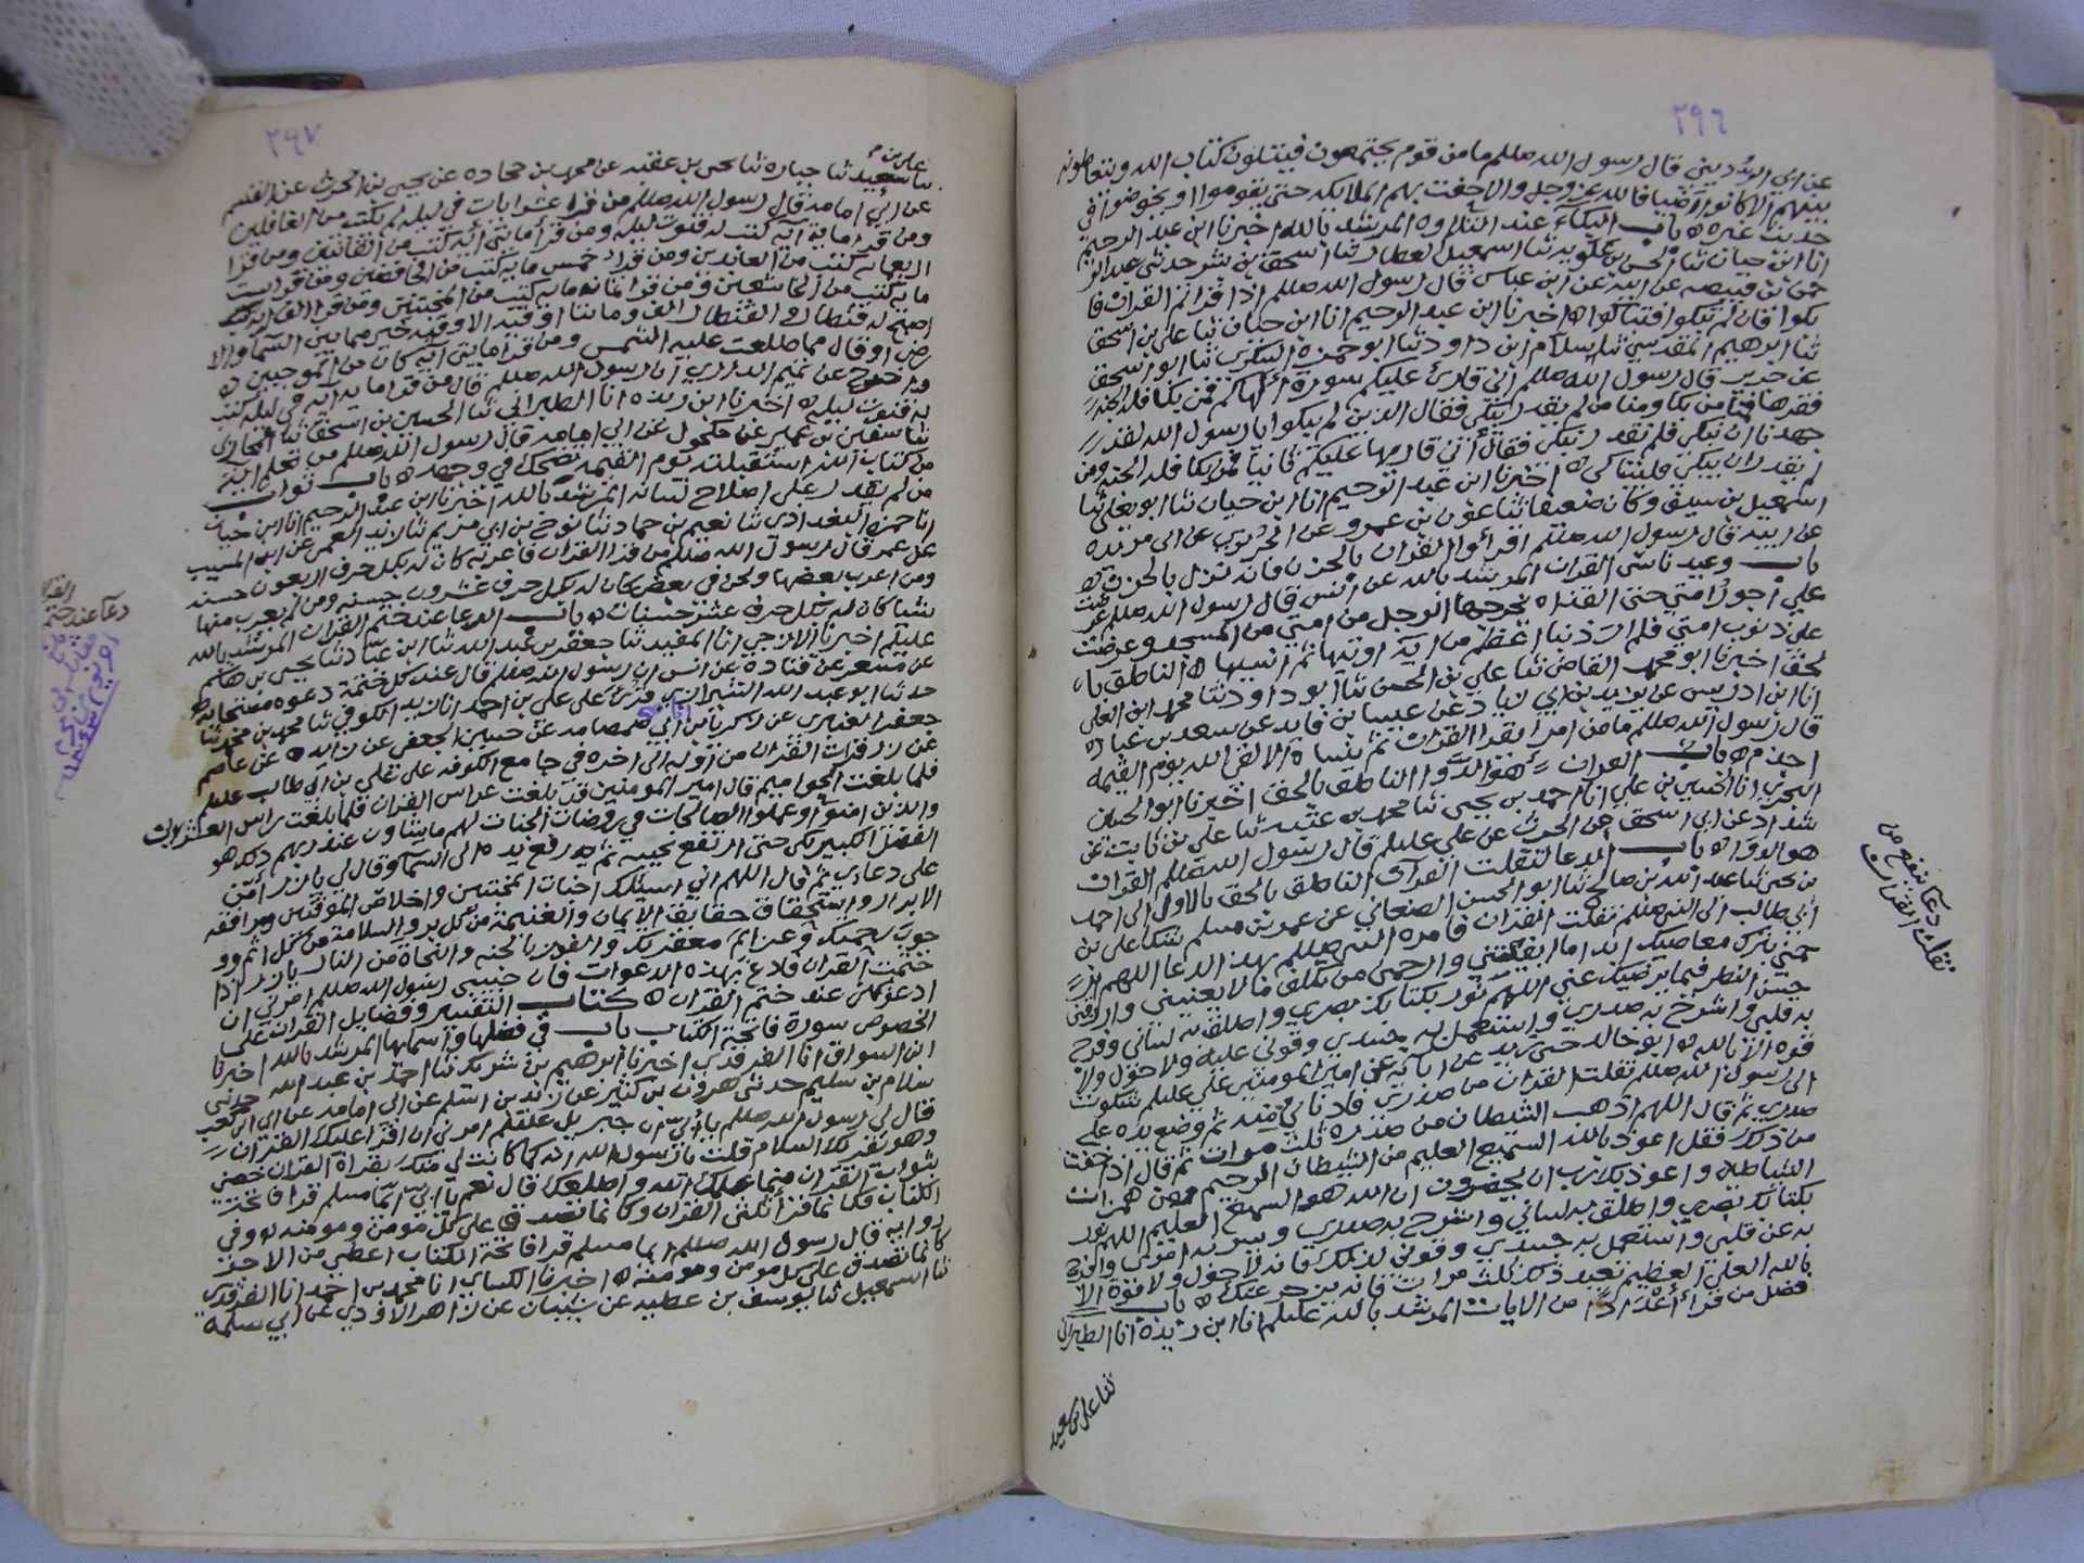 ٢٩٦
عن ابي الرديني قال رسول الله صللم ما من قوم يجتمعون فيتلون كتاب الله ويتعاطونه
بينهم الا كانوا اضيافا لله عز وجل والا حفت بهم الملايكه حتى يقوموا او يخوضوا في
حديث غيره ه باب البكاء عند التلاوه المرشد بالله اخبرنا ابن عبد الرحيم
انا ابن حيان ثنا الحسن بن علويه ثنا اسمعيل العطار ثنا اسحق بن بشر حدثني
عن ابيه عن ابن عباس قال رسول الله صللم اذا قراتم القران فا
بكوا فان لم تبكوا فتباكوا ه اخبرنا ابن عبد الرحيم انا ابن حيان ثنا علي بن اسحق
ثنا ابرهيم المقدسي ثنا سلام ابن داود ثنا ابو حمزه السكري ثنا ابو اسحق
عن جرير قال رسول الله صللم اني قارئ عليكم سورة الهاكم فمن بكا فله الجنه
فقراها فمنا من بكا ومنا من لم يقدر يبكي فقال الذين لم يبكوا يا رسول الله لقد
جهدنا ان نبكي فلم نقدر نبكي فقال اني قاريها عليكم ثانيا فمن بكا فله الجنه ومن
لم يقدر ان يبكي فليتباكى ه اخبرنا ابن عبد الرحيم انا ابن حيان ثنا ابو يعلى ثنا
اسمعيل بن سيف وكان ضعيفا ثنا عون بن عمرو عن الجريري عن ابي بريده
عن ابيه قال رسول الله صللم اقرأوا القران بالحزن فانه نزل بالحزن ه
باب وعيد ناسي القران المرشد بالله عن انس قال رسول الله صللم عرضت
علي اجور امتي حتى القذاه يخرجها الرجل من امتي من المسجد وعرضت
علي ذنوب امتي فلم ار ذنبا اعظم من اية اوتيها ثم انسيها ه الناطق با
لحق اخبرنا ابو محمد القاضي ثنا علي بن الحسن ثنا ابو داود ثنا محمد ابن العلى
انا ابن ادريس عن يزيد بن ابي زياد عن عيسا بن فايد عن سعد بن عباده
قال رسول الله صللم ما من امرا يقرا القران ثم ينساه الا لقي الله يوم القيمه
اجذم ه باب القران هو الدوا الناطق بالحق اخبرنا ابو الحسين
البحري انا الحسين بن علي انا احمد بن يحيى ثنا محمد بن عتبه ثنا علي بن ثابت عن
عن ابي اسحق عن الحرث عن علي عليلم قال رسول الله صللم القران
هو الدوا ه باب الدعا لتفلت القران الناطق بالحق بالاول الى احمد
بن يحيى ثنا عبد الله بن صالح ثنا ابو الحسن الصنعاني عن عمر بن مسلم شكا علي بن
ابي طالب الى النبي صللم تفلت القران فامره النبي صللم بهذا الدعا اللهم ار
حمني بترك معاصيك ابدا ما ابقيتني وارحمني من تكلف ما لا يعنيني وارزقني
حسن النظر فيما يرضيك عني اللهم نور بكتابك بصري واطلق به لساني وفرج
به قلبي واشرح به صدري واستعمل به جسدي وقوني عليه ولا حول ولا
قوه الا بالله ه ابو خالد حدثني زيد عن ابايه عن امير المومنين علي عليلم شكوت
الى رسول الله صللم تفلت القران من صدري فادناني منه ثم وضع يده على
صدري ثم قال اللهم اذهب الشيطان من صدره ثلث مرات ثم قال اذا خفت
من ذلك فقل اعوذ بالله السميع العليم من الشيطان الرجيم ومن همزات
الشياطين واعوذ بك رب ان يحضرون ان الله هو السميع العليم اللهم نور
بكتابك بصري واطلق به لساني واشرح به صدري ويسر به امري وافرج
به عن قلبي واستعمل به جسدي وقوني لذلك فانه لا حول ولا قوة الا
بالله العلي العظيم تعيد ذلك ثلث مرات فانه يزجر عنك ه باب
فضل من قرأ اعدادا من الايات المرشد بالله عليلم انا ابن ريذه انا الطبراني
ثنا علي بن سعيد
دعا ينفع من
تفلت القران
٢٩٧
علي بن
ثنا سعيد ثنا جباره ثنا يحيى بن عقبه عن محمد بن جحاده عن يحيى بن الحرث عن القسم
عن ابي امامه قال رسول الله صللم من قرا عشر ايات في ليله لم يكتب من الغافلين
ومن قرا ماية آيه كتب له قنوت ليله ومن قرأ مايتي أيه كتب من القانتين ومن قرا
اربعمايه كتب من العابدين ومن قرا خمس مايه كتب من الحافظين ومن قرا ست
مايه كتب من الخاشعين ومن قرا ثمانمايه كتب من المخبتين ومن قرا الف ايه
اصبح له قنطار والقنطار الف ومايتا اوقيه الاوقيه خير مما بين السماء والا
رض او قال مما طلعت عليه الشمس ومن قرا مايتي آيه كان من الموجبين ه
وبه عن تميم الداري ان رسول الله صللم قال من قرا مايه آيه في ليله كتب
له قنوت ليله ه اخبرنا ابن ريذه انا الطبراني ثنا الحسين بن اسحق ثنا
ثنا سفين بن عمير عن مكحول عن ابي امامه قال رسول الله صللم من تعلم ايه
من كتاب الله استقبلته يوم القيمه تضحك في وجهه ه باب ثواب
من لم يقدر على اصلاح لسانه المرشد بالله اخبرنا ابن عبد الرحيم انا ابن حيان
انا حمزه البغدادي ثنا نعيم بن حماد ثنا نوح بن ابي مريم ثنا زيد العمي عن ابن المسيب
عن عمر قال رسول الله صللم من قرا القران فاعربه كان له بكل حرف اربعون حسنه
ومن اعرب بعضها ولحن في بعض كان له بكل حرف عشرون حسنه ومن لم يعرب منها
شيا كان له بكل حرف عشر حسنات ه باب الدعا عند ختم القران المرشد بالله
عليلم اخبرنا الازجي انا المفيد ثنا جعفر بن عبد الله ثنا ابن عباد ثنا يحيى بن هاشم
عن مسعر عن قتاده عن انس ان رسول الله صللم قال عند كل ختمة دعوه مستجابه
حدثنا ابو عبد الله الشيرازي قرئ على علي بن احمد انا زيد الكوفي ثنا محمد بن محمد ثنا
عن حسين الجعفي عن زايده عن عاصم
عن زر قرات القران من اوله الى اخره في جامع الكوفه على علي بن ابي طالب عليلم
فلما بلغت الحواميم قال امير المومنين قد بلغت عرايس القران فلما بلغت راس العشرين
والذين امنوا وعملوا الصالحات في روضات الجنات لهم ما يشاون عند ربهم ذلك هو
الفضل الكبير بكى حتى ارتفع نحيبه ثم رفع يده الى السماء وقال لي يا زر أمن
على دعاي ثم قال اللهم اني اسئلك اخبات المخبتين واخلاص الموقنين ومرافقة
الابرار واستحقاق حقايق الايمان والغنيمة من كل بر والسلامة من كل اثم وو
جوب رحمتك وعزايم مغفرتك والفوز بالجنه والنجاة من النار يا زر اذا
ختمت القران فادع بهذه الدعوات فان حبيبي رسول الله صللم امرني ان
ادعو بهن عند ختم القران ه كتاب التفسير وفضايل القران على
الخصوص سورة فاتحة الكتاب باب في فضلها واسمايها المرشد بالله اخبرنا
ابن السواق انا الفرقدي اخبرنا ابرهيم بن شريك ثنا احمد بن عبد الله حدثني
سلام بن سليم حدثني هرون بن كثير عن زيد بن اسلم عن ابي امامه عن ابي ابن كعب
قال لي رسول الله صللم يا أبي ان جبريل عليلم امرني ان اقرا عليك القران
وهو يقريك السلام قلت يا رسول الله انه كما كانت لي منك بقراة القران خصني
بثواب القران فيما علمك الله واطلعك قال نعم يا ابي ايما مسلم قرا فاتحة
الكتاب فكانما قرأ ثلثي القران وكانما تصدق على كل مومن ومومنه ه وفي
روايه قال رسول الله صللم ايما مسلم قرا فاتحة الكتاب اعطي من الاجر
كانما تصدق على كل مومن ومومنة ه اخبرنا الكسايي انا محمد بن احمد انا الفرقدي
ثنا اسمعيل ثنا يوسف بن عطيه عن شيبان عن زاهر الاودي عن ابي سلمة
دعآ عند ختم
القران